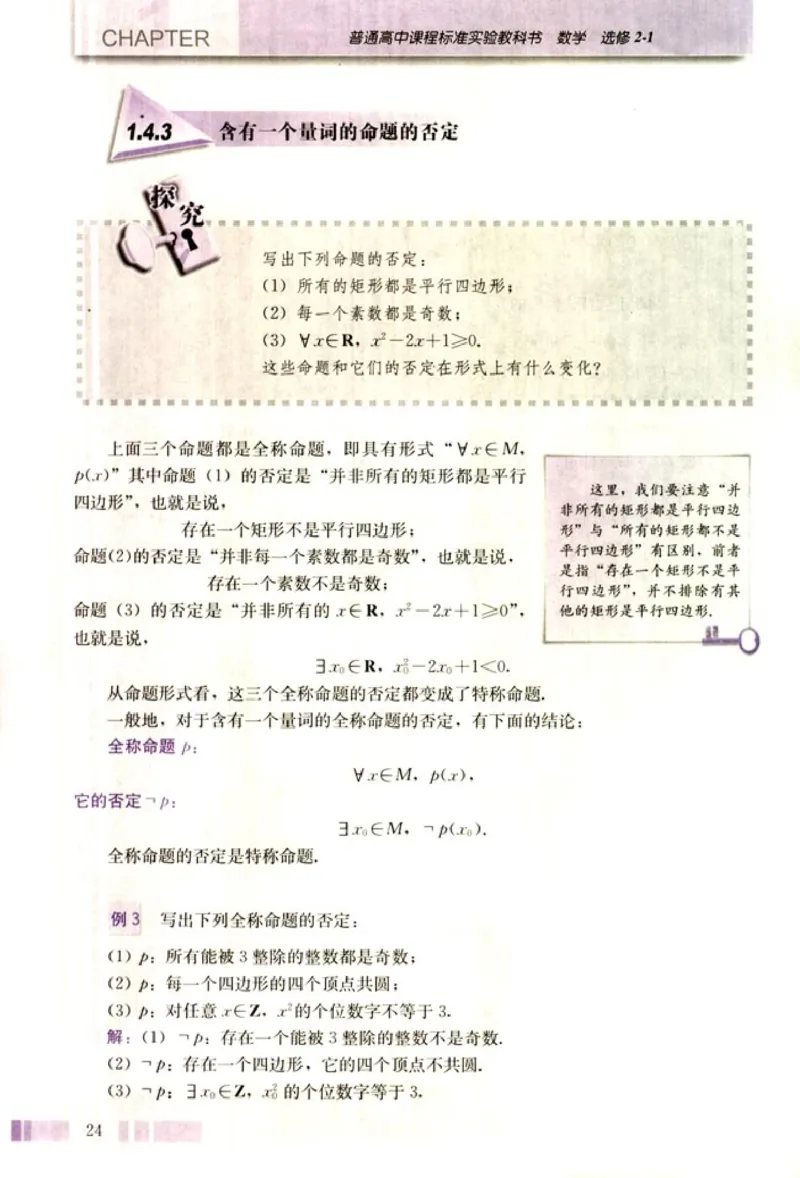 CHAPTER
普通高中课程标准实验教科书 数学 选修 2-1
1.4.3 含有一个量词的命题的否定
探究
写出下列命题的否定：
(1) 所有的矩形都是平行四边形；
(2) 每一个素数都是奇数；
(3) ∀x∈R，x²－2x＋1⩾0.
这些命题和它们的否定在形式上有什么变化？
上面三个命题都是全称命题，即具有形式“∀x∈M，
p(x)”其中命题（1）的否定是“并非所有的矩形都是平行
四边形”，也就是说，
存在一个矩形不是平行四边形；
命题(2)的否定是“并非每一个素数都是奇数”，也就是说，
存在一个素数不是奇数；
命题（3）的否定是“并非所有的 x∈R，x²－2x＋1⩾0”，
也就是说，
∃x₀∈R，x₀²－2x₀＋1<0.
这里，我们要注意“并
非所有的矩形都是平行四边
形”与“所有的矩形都不是
平行四边形”有区别，前者
是指“存在一个矩形不是平
行四边形”，并不排除有其
他的矩形是平行四边形.
从命题形式看，这三个全称命题的否定都变成了特称命题.
一般地，对于含有一个量词的全称命题的否定，有下面的结论：
全称命题 p：
∀x∈M，p(x)，
它的否定￢p：
∃x₀∈M，￢p(x₀).
全称命题的否定是特称命题.
例 3 写出下列全称命题的否定：
(1) p：所有能被 3 整除的整数都是奇数；
(2) p：每一个四边形的四个顶点共圆；
(3) p：对任意 x∈Z，x²的个位数字不等于 3.
解：(1) ￢p：存在一个能被 3 整除的整数不是奇数.
(2) ￢p：存在一个四边形，它的四个顶点不共圆.
(3) ￢p：∃x₀∈Z，x₀² 的个位数字等于 3.
24